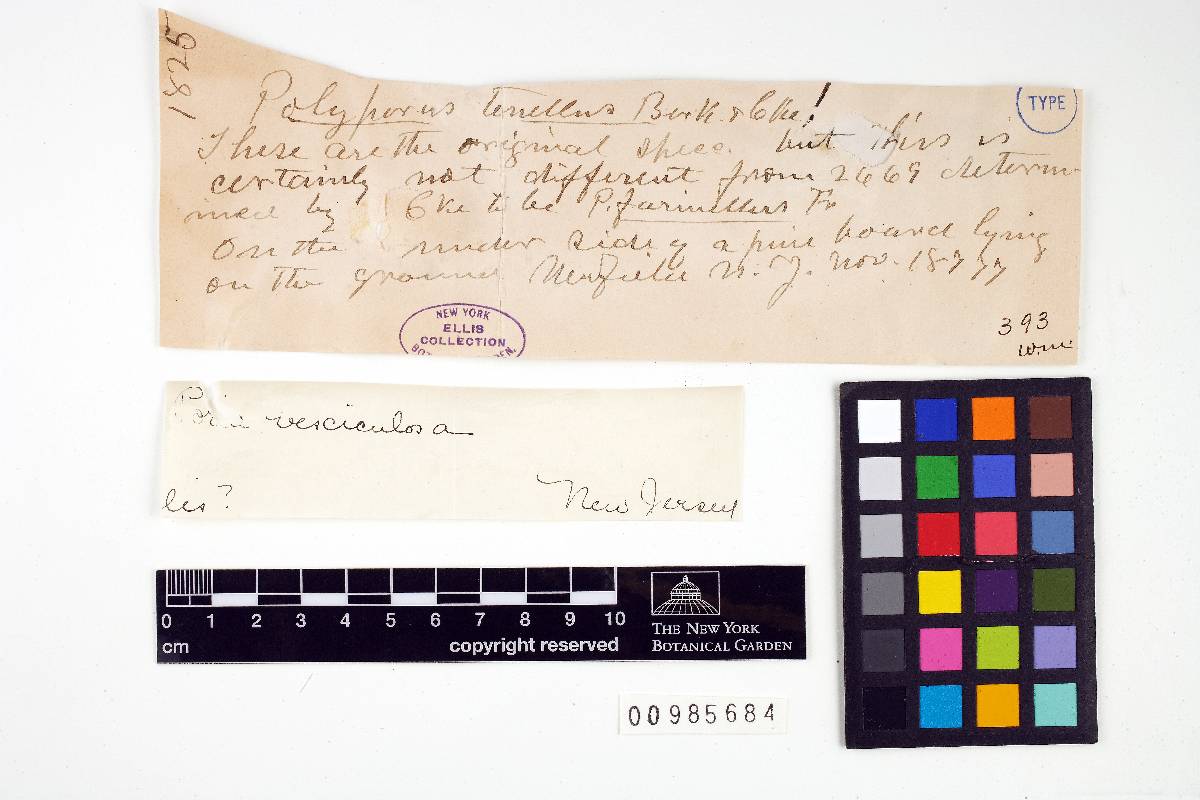 1825
Polyporus tenellus Berk. & Cke!
TYPE
These are the original spec. but this is
certainly not different from 2669 determ-
ined by Cke to be P. farinellus Fr
On the under side of a pine board lying
on the ground Newfield N. J. Nov. 1877
NEW YORK
ELLIS
COLLECTION
393
Poria vesciculosa
lis?
New Jersey
0 1 2 3 4 5 6 7 8 9 10
cm
copyright reserved
THE NEW YORK
BOTANICAL GARDEN
00985684